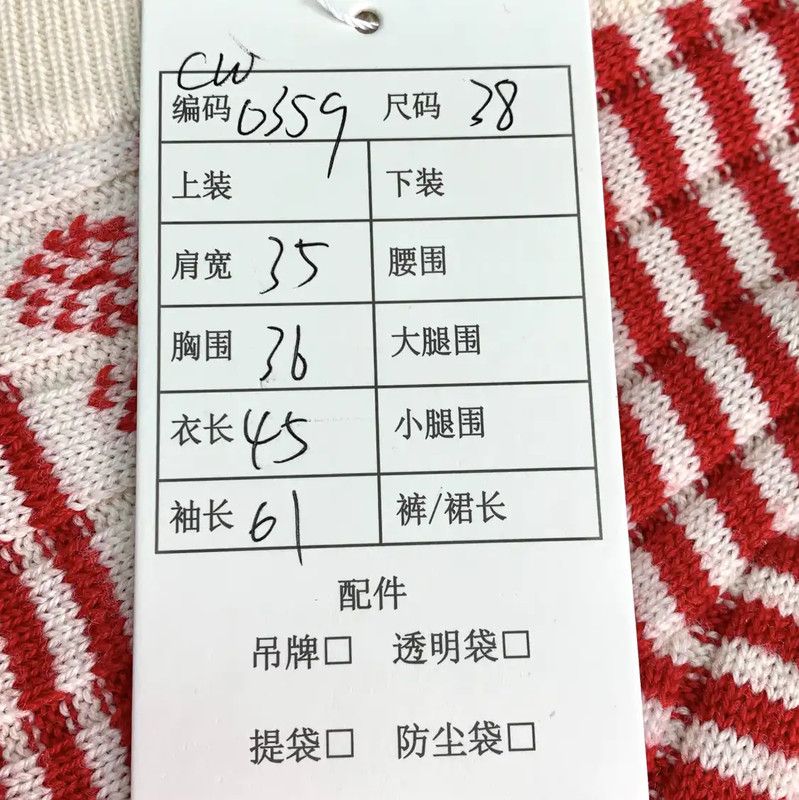 CW
编码 0359 尺码 38
上装 下装
肩宽 35 腰围
胸围 36 大腿围
衣长 45 小腿围
袖长 61 裤/裙长
配件
吊牌□ 透明袋□
提袋□ 防尘袋□